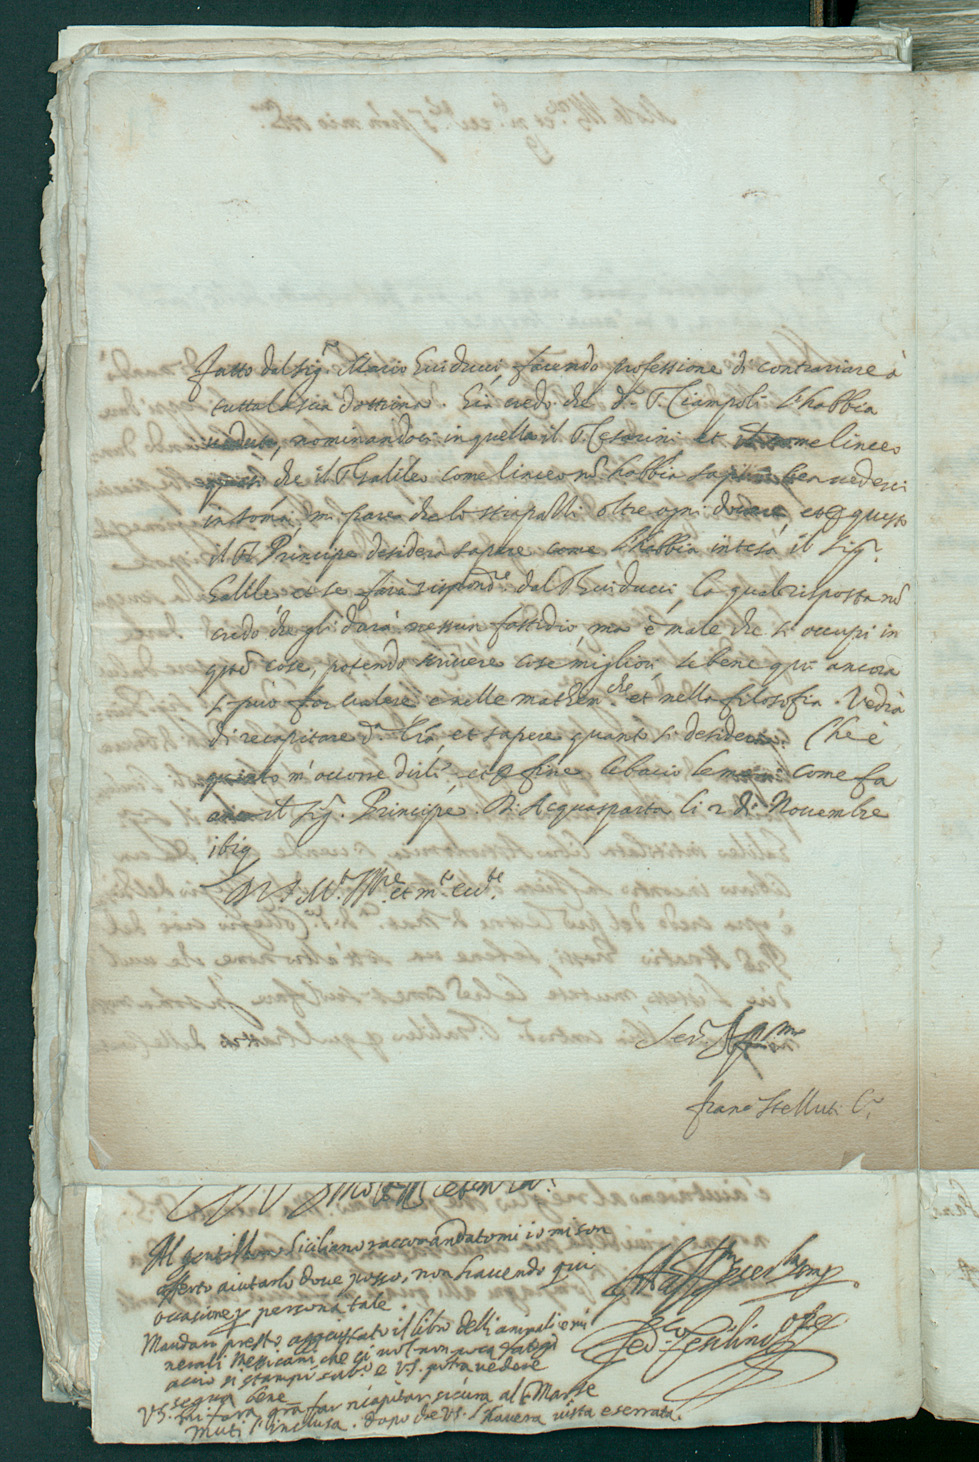 fatto dal Sig.r Mario Guiducci, facendo professione di contrariare à
tutta la sua dottrina. Già credo che d.o S. Ciampoli l'habbia
veduta, nominandosi in quella il S. Cesarini et come linceo
che il S. Galileo come linceo nō l'habbia vedersi
in som̃a mi pare che lo strapazzi oltre ogni dovere, et p questo
il S. Principe desidera sapere come l'habbia intesa il Sig.r
Galileo et se sarà rispond.e dal S. Guiducci, la qual risposta nō
credo che gli darà nessun fastidio, ma è male che si occupi in
q̄ste cose, potendo scrivere cose migliori se bene qui ancora
si può far valere e nelle mathem.che et nella filosofia. Vedrà
di recapitare d.a l̃ra, et sapere quanto si desidera. Che è
quanto m'occorre dirli, et p fine le bacio le mani come fa
anco il Sig.r Principe. Di Acquasparta li 2 di Novembre
1619
Di V.S. M.to Ill.re et m.to ecc.te
Ser.
Franc.o Stelluti L.
Al gentilhomo Siciliano raccomandatomi io mi son
offerto aiutarlo dove posso, non havendo qui
occasione p persona tale.
Mandari presto il libro delli animali e mi
nerali Messicani, che ci vol non poca fatiga
acciò si stampi e V.S. potrà vedere
segua bene
V.S. mi farà gra far ricapitar sicura al S. Marse
Muti l'inclusa. dopo che V.S. l'haverà vista e serrata.